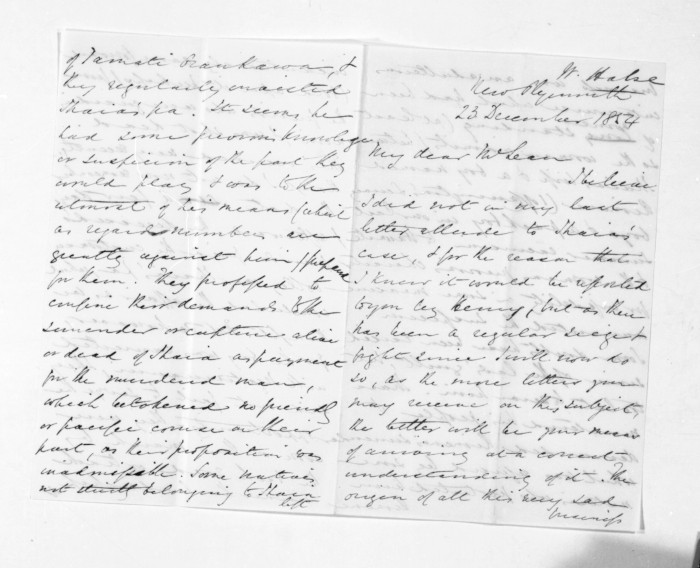 W. Halse
New Plymouth
23 December 1854
My dear McLean
I believe
I did not in my last
letter allude to Ihaia's
case, & for the reason that
I knew it would be reported
to you by Henry, but as there
has been a regular seige &
fight since I will now do
so, as the more letters you
may receive on this subject,
the better will be your means
of arriving at a correct
understanding of it. The
origin of all this very sad
business
of Tamati Tiraurau, &
they regularly invested
Ihaia's pa. It seems he
had some previous knowledge
or suspicion of the part they
would play & was to the
utmost of his means (which
as regards numbers are
greatly against him) prepared
for them. They professed to
confine their demands to the
surrender or capture alive
or dead of Ihaia as payment
for the murdered man,
which betokened no friendly
or pacific course on their
part, as their proposition was
inadmissable. Some natives
not strictly belonging to Ihaia
left